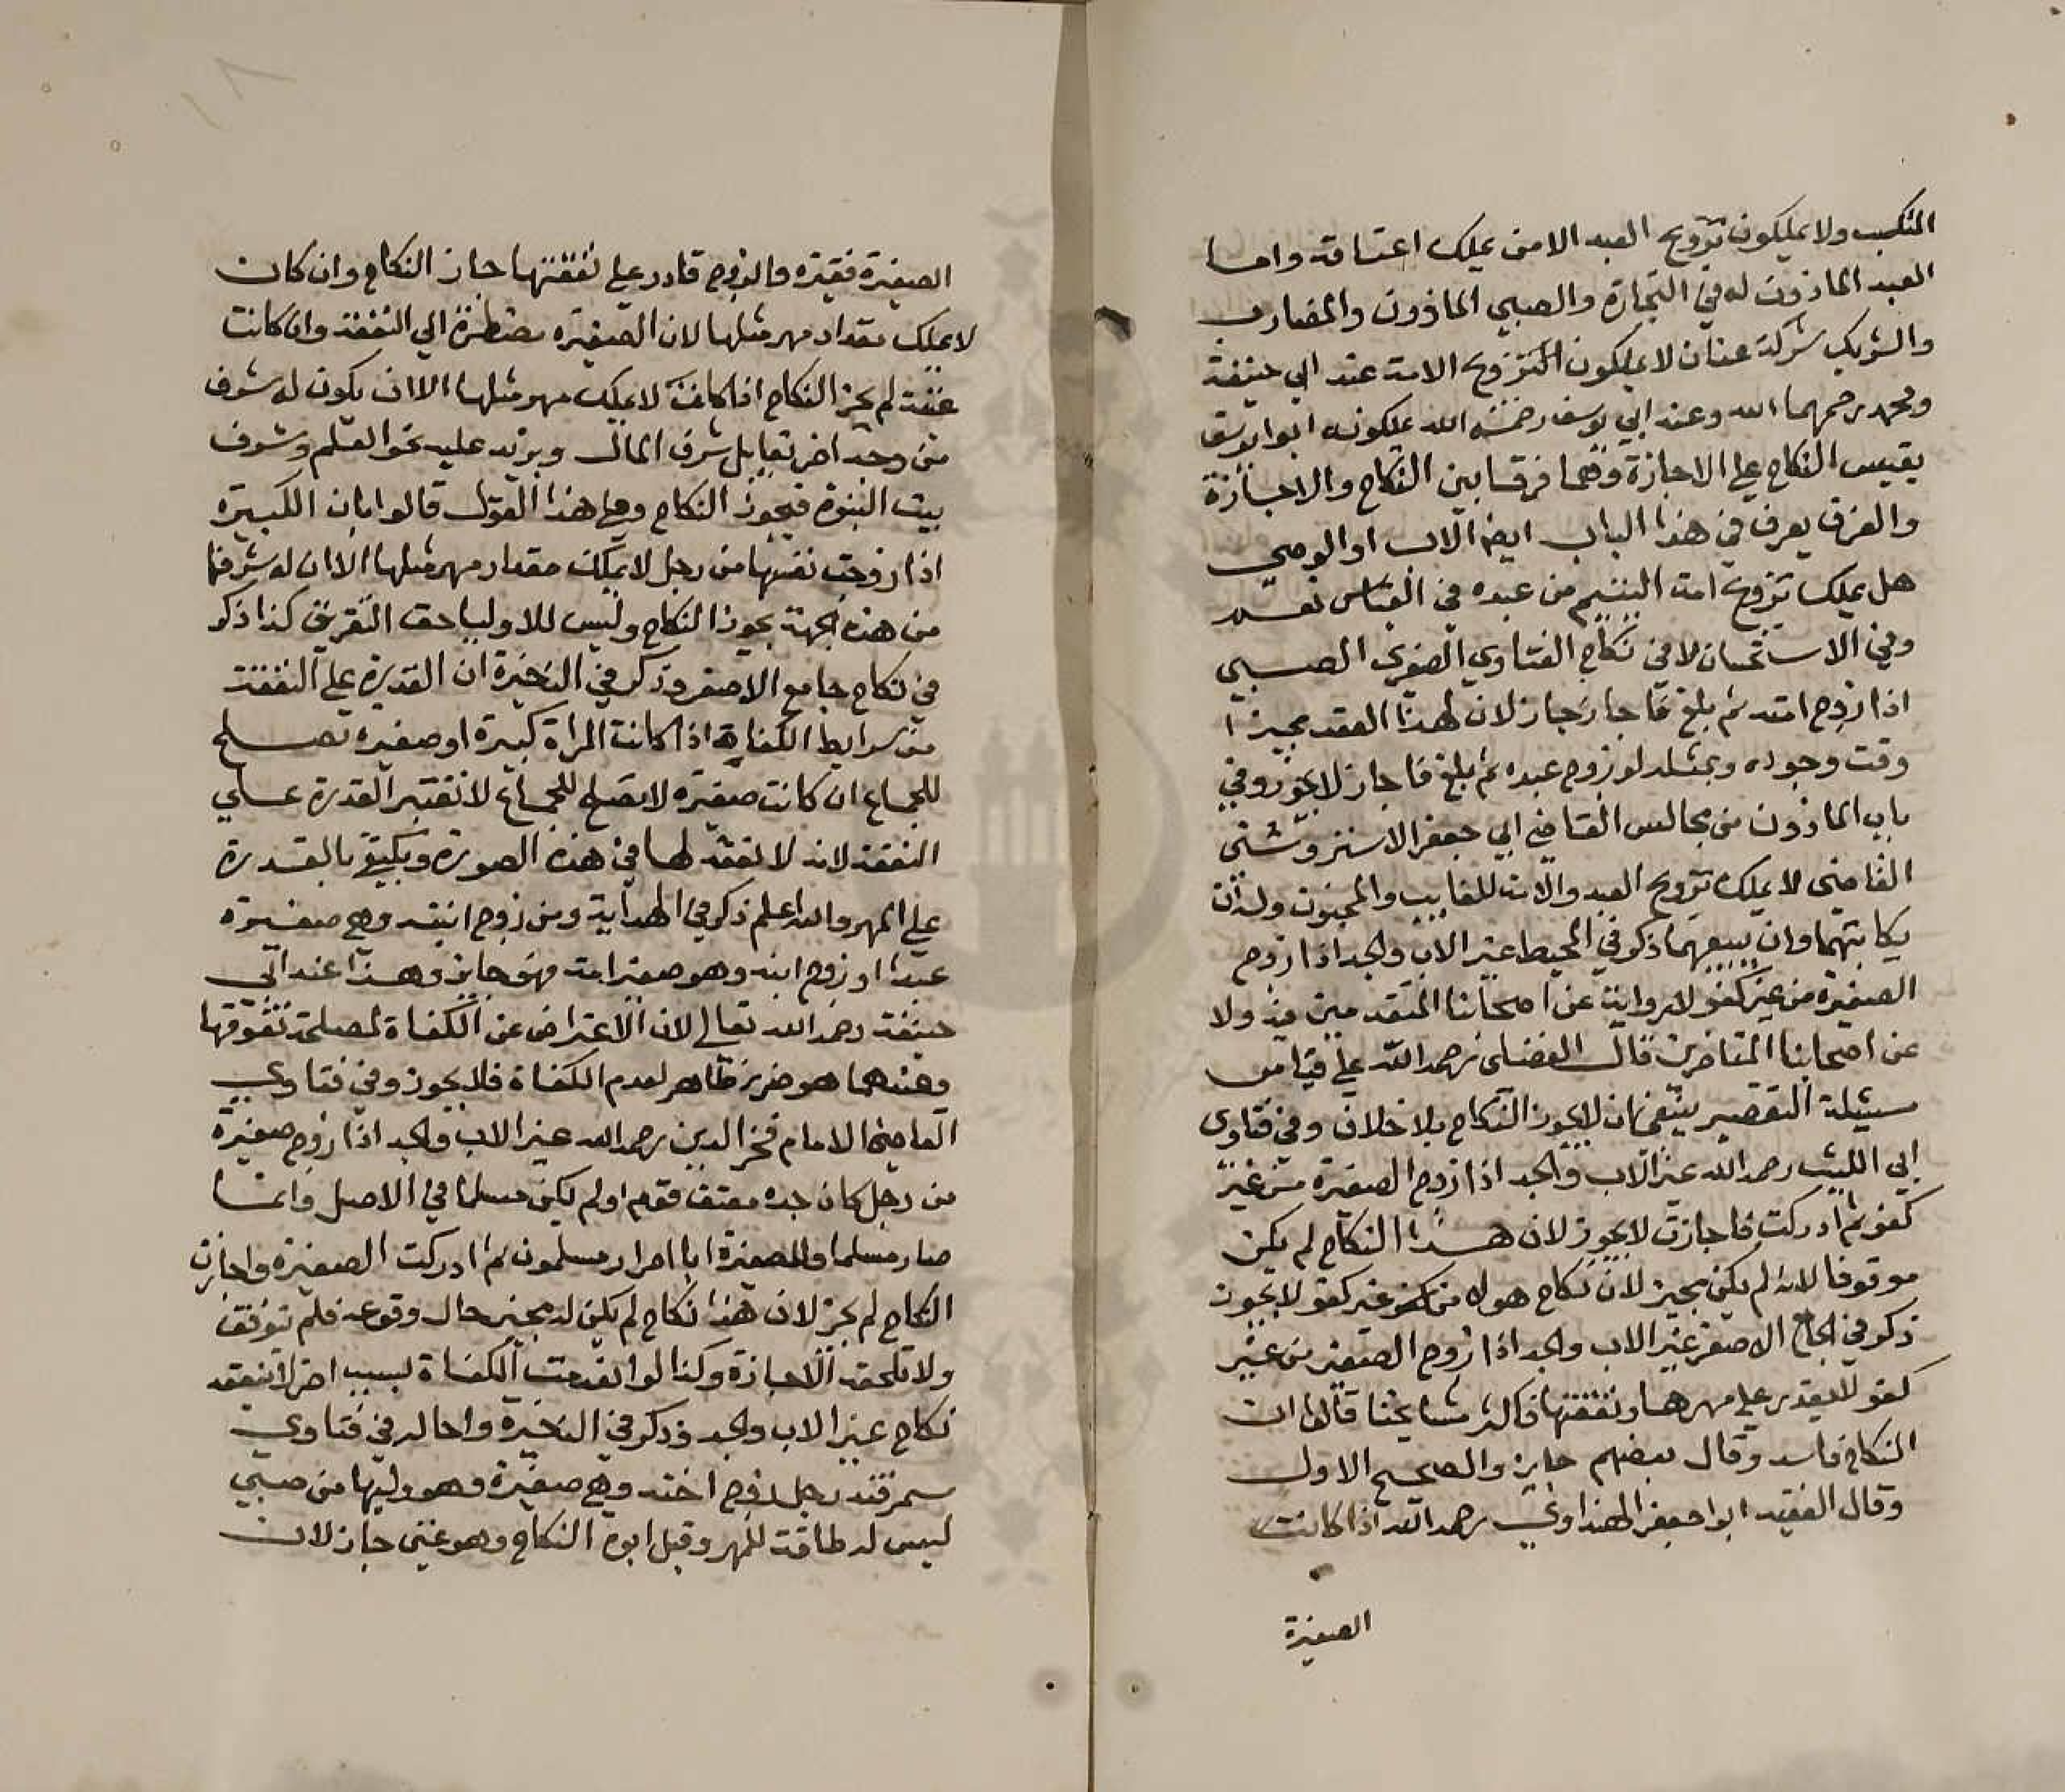 المكسب ولا يملكون تزويج العبد الا من يملك اعتاقه واما
العبد الماذون له في التجارة والصبي الماذون والمضارب
والشريك شركة عنان لا يملكون التزويج الامة عند ابي حنيفة
ومحمد رحمهما الله وعند ابي يوسف رحمة الله يملكونه ابوا يوسف
يقيس النكاح علي الاجازة وهما فرقا بين النكاح والاجازة
والفرق يعرف في هذا الباب ايضا الاب او الوصي
هل يملك تزويج امة اليتيم من عبده في القياس نعم
وفي الاستحسان لا في نكاح الفتاوي الصغري الصبي
اذا زوج امته ثم بلغ فاجاز جاز لان لهذا العقد مجيزا
وقت وجوده وبمثله لو زوج عبده ثم بلغ فاجاز لا يجوز وفي
باب الماذون من مجالس القاضي ابي جعفر الاستروشني
القاضي لا يملك تزويج العبد والامة للغايب والمجنون وله ان
يكاتبهما وان يبيعهما ذكر في المحيط غير الاب والجد اذا زوج
الصغيرة من غير كفو لا رواية عن اصحابنا المتقدمين فيه ولا
عن اصحابنا المتاخرين قال الفضلي رحمه الله علي قياس
مسيلة التقصير ينبغي ان لا يجوز النكاح بلا خلاف وفي فتاوي
ابي الليث رحمه الله غير الاب والجد اذا زوج الصغيرة من غير
كفو ثم ادركت فاجازت لا يجوز لان هذا النكاح لم يكن
موقوفا لانه لم يكن مجيز لان نكاح هولا من غير كفو لا يجوز
ذكر في الجامع الاصغر غير الاب والجد اذا زوج الصغير من غير
كفو لا يقدر علي مهرها ونفقتها فاكثر مشايخنا قالوا ان
النكاح فاسد وقال بعضهم جايز والصحيح الاول
وقال الفقيه ابوا جعفر الهنداوي رحمه الله اذا كانت
الصغيرة
الصغيرة فقيرة والزوج قادر علي نفقتها جاز النكاح وان كان
لا يملك مقدار مهر مثلها لان الصغيرة مضطرة الي النفقة وان كانت
غنية لم يجز النكاح اذا كان لا يملك مهر مثلها الا ان يكون له شرف
من وجه اخر تقابل شرف المال ويزيد عليه نحو العلم وشرف
بيت النبوة فيجوز النكاح وعلي هذا القول قالوا بان الكبيرة
اذا زوجت نفسها من رجل لا يملك مقدار مهر مثلها الا ان له شرفا
من هذه الجهة يجوز النكاح وليس للاوليا حق التفريق كذا ذكر
في نكاح جامع الاصغر وذكر في الذخيرة ان القدرة علي النفقة
من شرايط الكفاة اذا كانت المراة كبيرة او صغيرة تصلح
للجماع ان كانت صغيرة لا تصلح للجماع لا تعتبر القدرة علي
النفقة لانه لا نفقة لها في هذه الصورة ويكتفي بالقدرة
علي المهر والله اعلم ذكر في الهداية ومن زوج ابنته وهي صغيرة
عبدا او زوج ابنه وهو صغير امة فهو جايز وهذا عند ابي
حنيفة رحمه الله تعالي لان الاعتراض عن الكفاة لمصلحة تفوقها
وعندهما هو ضرر ظاهر لعدم الكفاة فلا يجوز وفي فتاوي
القاضي الامام فخر الدين رحمه الله غير الاب والجد اذا زوج صغيرة
من رجل كان جده معتق قوم او لم يكن مسلما في الاصل وانما
صار مسلما وللصغيرة ابا احرار مسلمون ثم ادركت الصغيرة واجازت
النكاح لم يجز لان هذا نكاح لم يكن له مجيز حال وقوعه فلم تتوقف
ولا تلحقه الاجازة وكذا لو انعدمت الكفاة لسبب اخر لا ينعقد
نكاح غير الاب والجد وذكر في الذخيرة واحاله في فتاوي
سمرقند رجل زوج اخته وهي صغيرة وهو وليها من صبي
ليس له طاقة للمهر وقبل ابوه النكاح وهو غني جاز لان